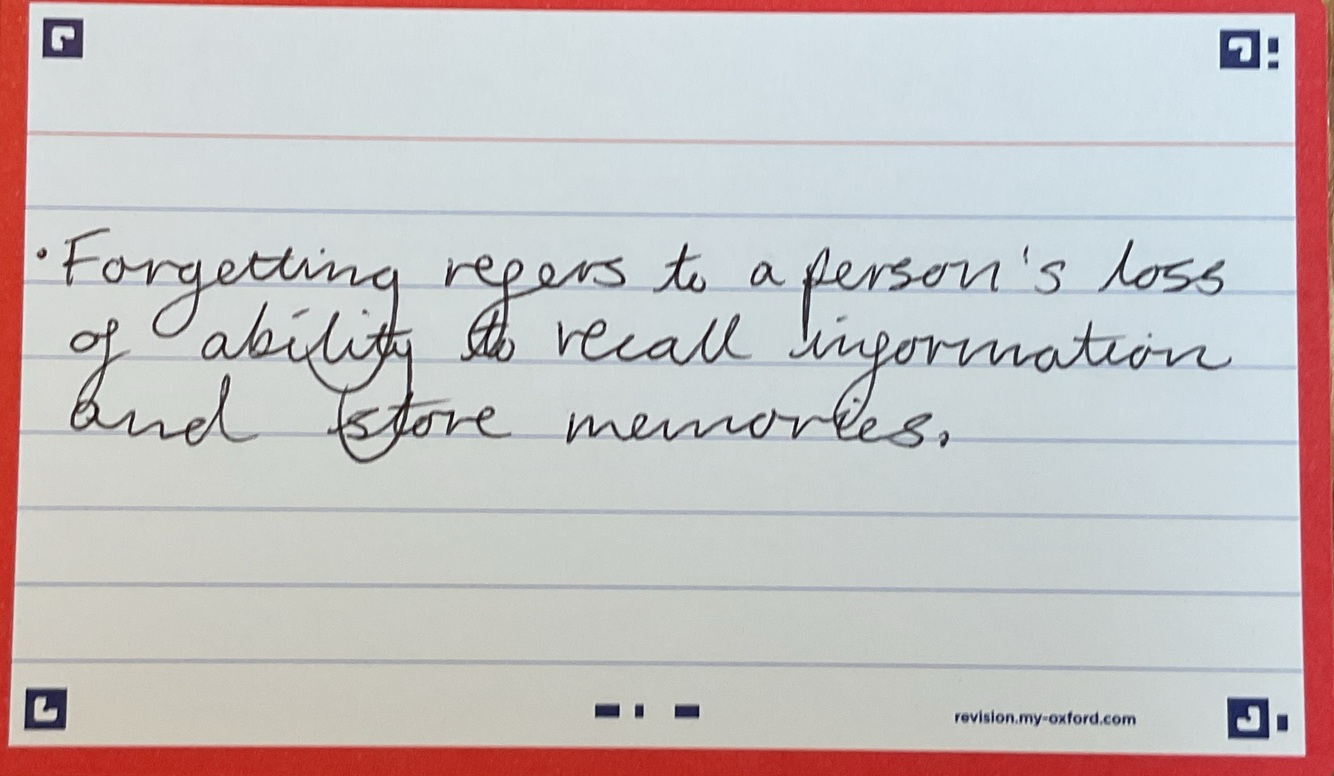 · Forgetting refers to a person's loss
of ability to recall information
and store memories.
revision.my-oxford.com